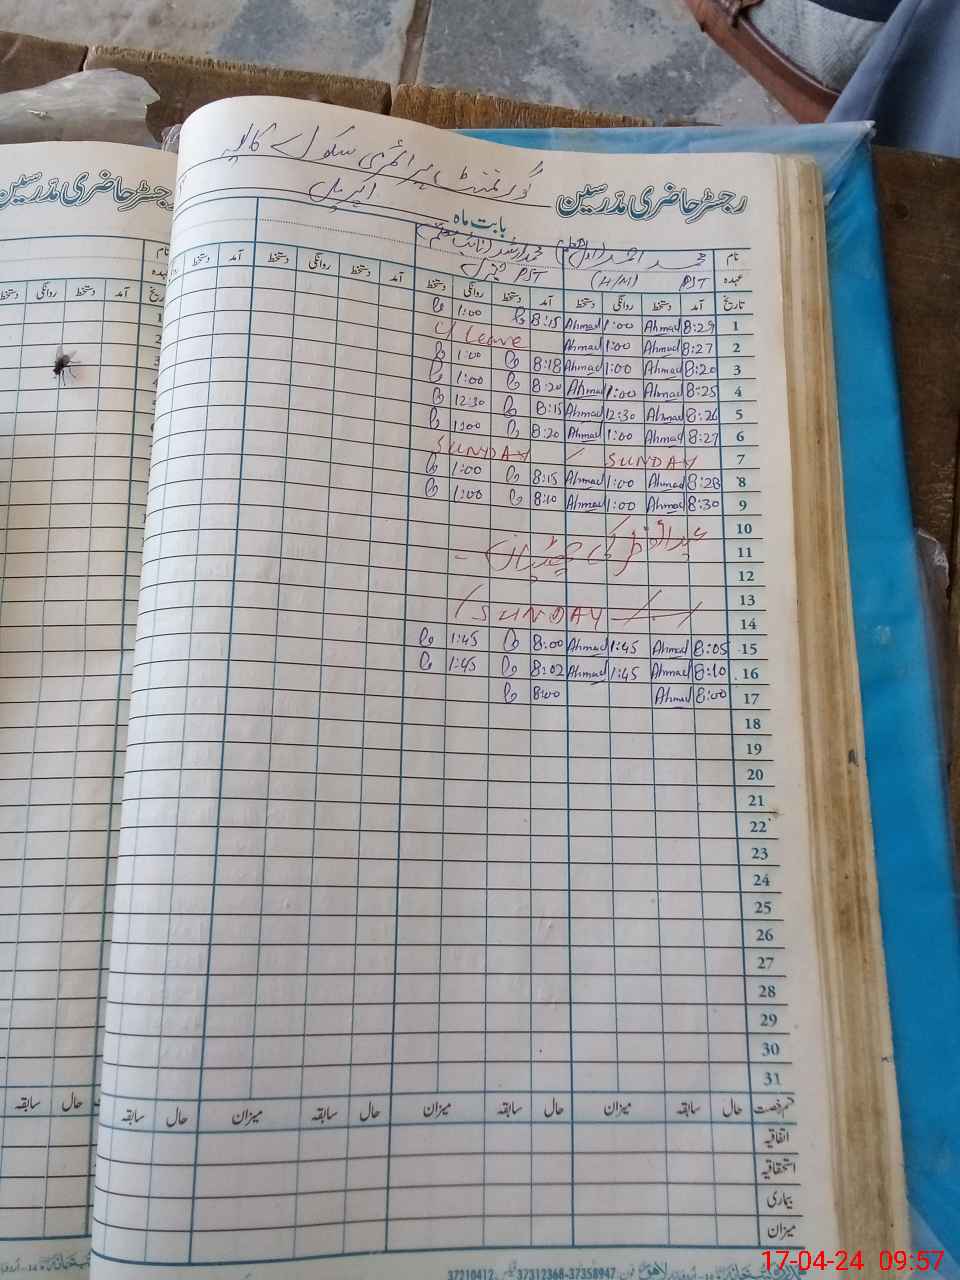 گورنمنٹ پرائمری سکول
رجسٹر حاضری مدرسین
رجسٹر حاضری مدرسین
بابت ماہ اپریل
نام محمد احمد محمد ارشد
عہدہ PST (H/M) PST
تاریخ آمد دستخط روانگی دستخط آمد دستخط روانگی دستخط آمد دستخط روانگی دستخط آمد دستخط
1 8:29 Ahmad 1:00 Ahmad 8:15 1:00
2 8:27 Ahmad 1:00 Ahmad Leave
3 8:20 Ahmad 1:00 Ahmad 8:18 1:00
4 8:25 Ahmad 1:00 Ahmad 8:20 1:00
5 8:26 Ahmad 12:30 Ahmad 8:15 12:30
6 8:27 Ahmad 1:00 Ahmad 8:20 1:00
7 SUNDAY SUNDAY
8 8:28 Ahmad 1:00 Ahmad 8:15 1:00
9 8:30 Ahmad 1:00 Ahmad 8:10 1:00
10
11 عیدالفطر کی چھٹیاں
12
13
14 SUNDAY
15 8:05 Ahmad 1:45 Ahmad 8:00 1:45
16 8:10 Ahmad 1:45 Ahmad 8:02 1:45
17 8:00 Ahmad 8:00
18
19
20
21
22
23
24
25
26
27
28
29
30
31
قسم رخصت حال سابقہ میزان حال سابقہ میزان حال سابقہ میزان حال سابقہ
اتفاقیہ
استحقاقیہ
بیماری
میزان
37210412 37312368-37358947
17-04-24 09:57